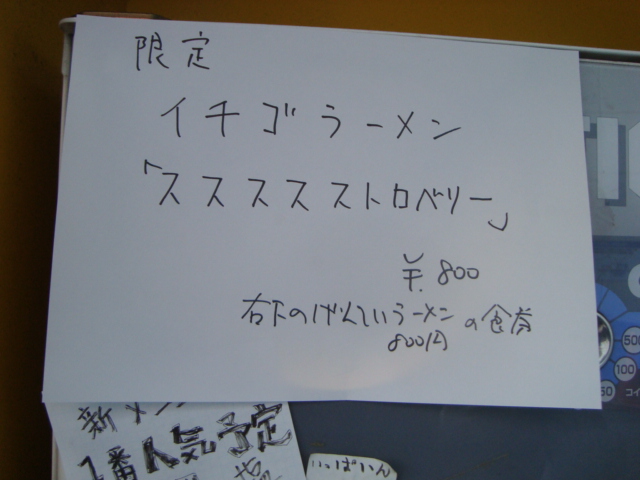 限定
イチゴラーメン
「ススススストロベリー」
￥800
右下のげんていラーメンの食券
800円
新メン
1番人気予定
いっぱいん
500
100
50
コイ